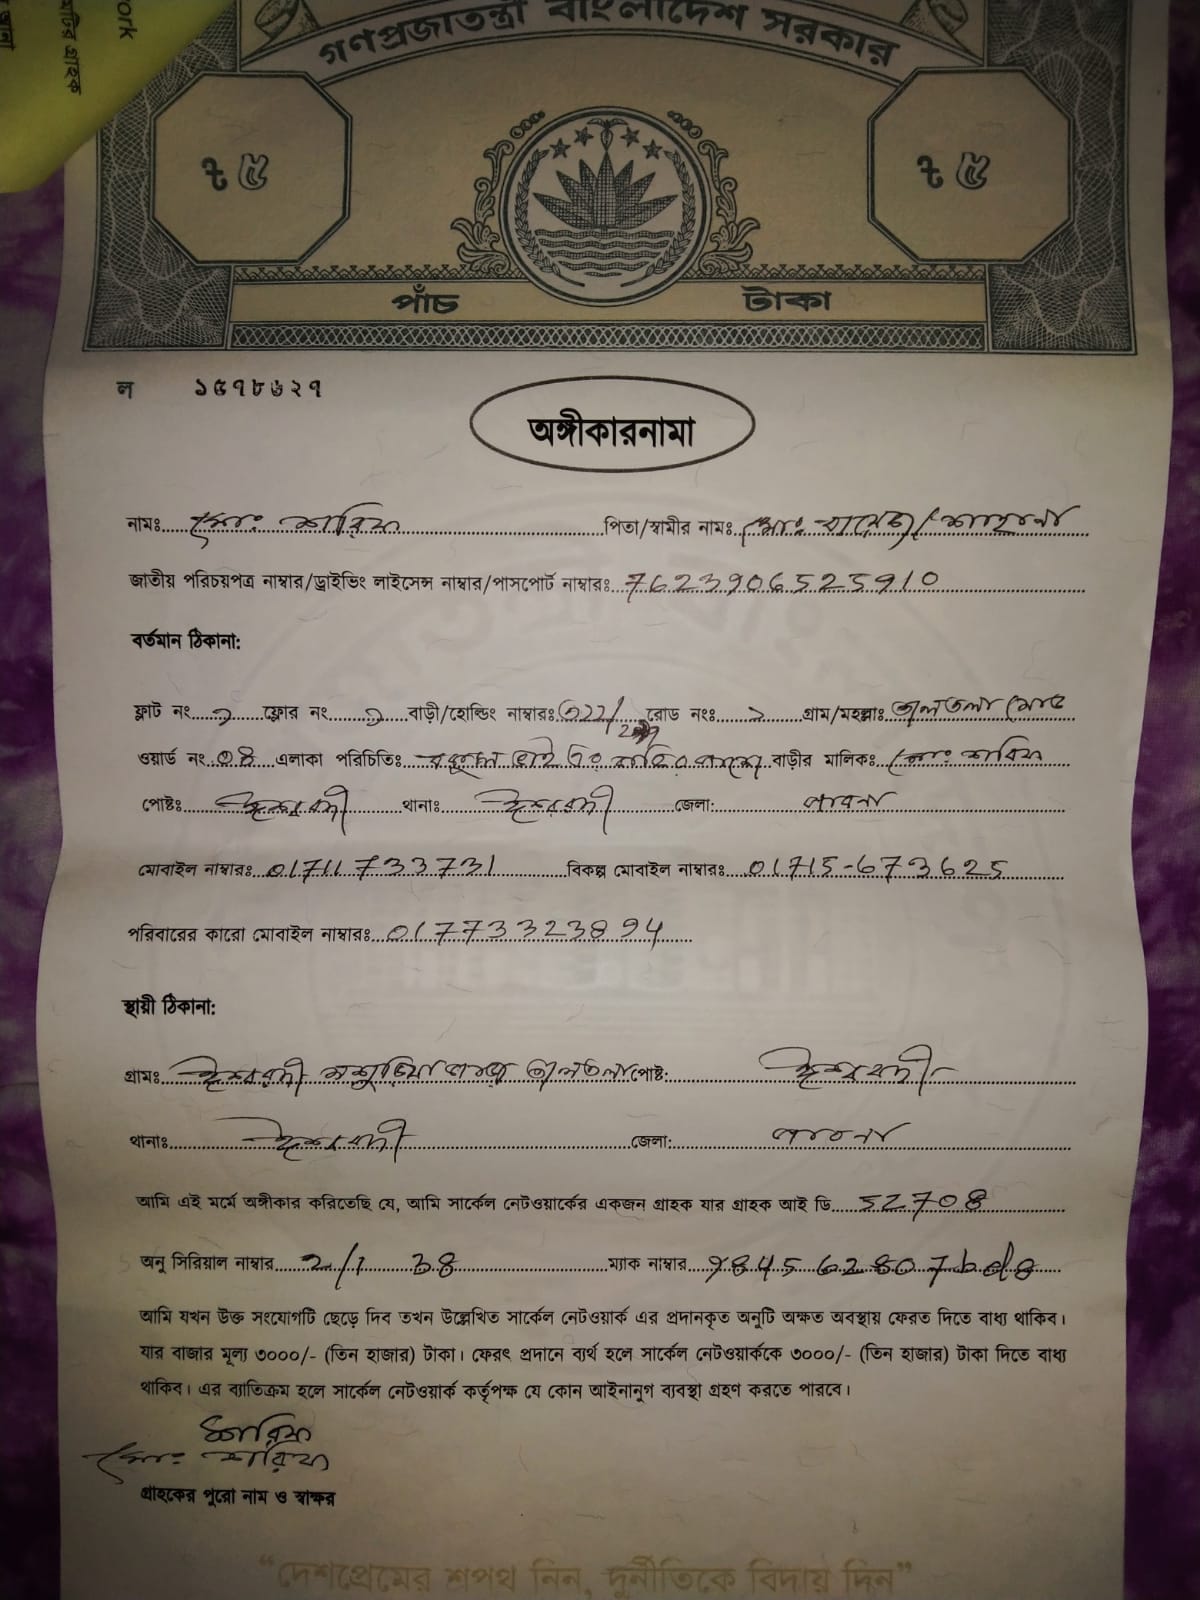 ork
গণপ্রজাতন্ত্রী বাংলাদেশ সরকার
৳ ৫ ৳ ৫
পাঁচ টাকা
ল ১৫৭৮৬২৭
অঙ্গীকারনামা
নামঃ মোঃ শরিফ পিতা/স্বামীর নামঃ মোঃ
জাতীয় পরিচয়পত্র নাম্বার/ড্রাইভিং লাইসেন্স নাম্বার/পাসপোর্ট নাম্বারঃ 7623906525910
বর্তমান ঠিকানা:
ফ্লাট নং ফ্লোর নং বাড়ী/হোল্ডিং নাম্বারঃ রোড নংঃ গ্রাম/মহল্লাঃ
ওয়ার্ড নং ০৪ এলাকা পরিচিতিঃ বাড়ীর মালিকঃ মোঃ শরিফ
পোষ্টঃ ঈশ্বরদী থানাঃ ঈশ্বরদী জেলা: পাবনা
মোবাইল নাম্বারঃ 01711733731 বিকল্প মোবাইল নাম্বারঃ 01715-673625
পরিবারের কারো মোবাইল নাম্বারঃ
স্থায়ী ঠিকানা:
গ্রামঃ ঈশ্বরদী পোষ্ট: ঈশ্বরদী
থানাঃ ঈশ্বরদী জেলা: পাবনা
আমি এই মর্মে অঙ্গীকার করিতেছি যে, আমি সার্কেল নেটওয়ার্কের একজন গ্রাহক যার গ্রাহক আই ডি 52708
অনু সিরিয়াল নাম্বার ম্যাক নাম্বার
আমি যখন উক্ত সংযোগটি ছেড়ে দিব তখন উল্লেখিত সার্কেল নেটওয়ার্ক এর প্রদানকৃত অনুটি অক্ষত অবস্থায় ফেরত দিতে বাধ্য থাকিব।
যার বাজার মূল্য ৩০০০/- (তিন হাজার) টাকা। ফেরৎ প্রদানে ব্যর্থ হলে সার্কেল নেটওয়ার্ককে ৩০০০/- (তিন হাজার) টাকা দিতে বাধ্য
থাকিব। এর ব্যতিক্রম হলে সার্কেল নেটওয়ার্ক কর্তৃপক্ষ যে কোন আইনানুগ ব্যবস্থা গ্রহণ করতে পারবে।
শরিফ
মোঃ শরিফ
গ্রাহকের পুরো নাম ও স্বাক্ষর
“দেশপ্রেমের শপথ নিন, দুর্নীতিকে বিদায় দিন”